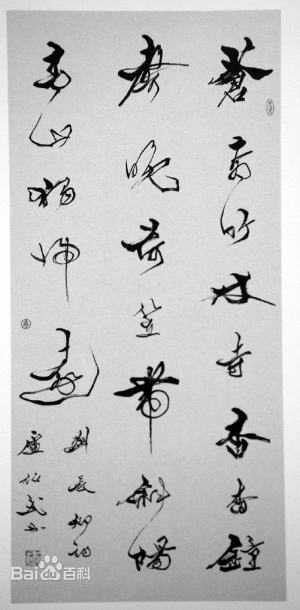 蒼蒼竹林寺杳杳鐘
聲晚荷笠帶斜陽
青山獨歸遠
劉長卿詩
Bai百科